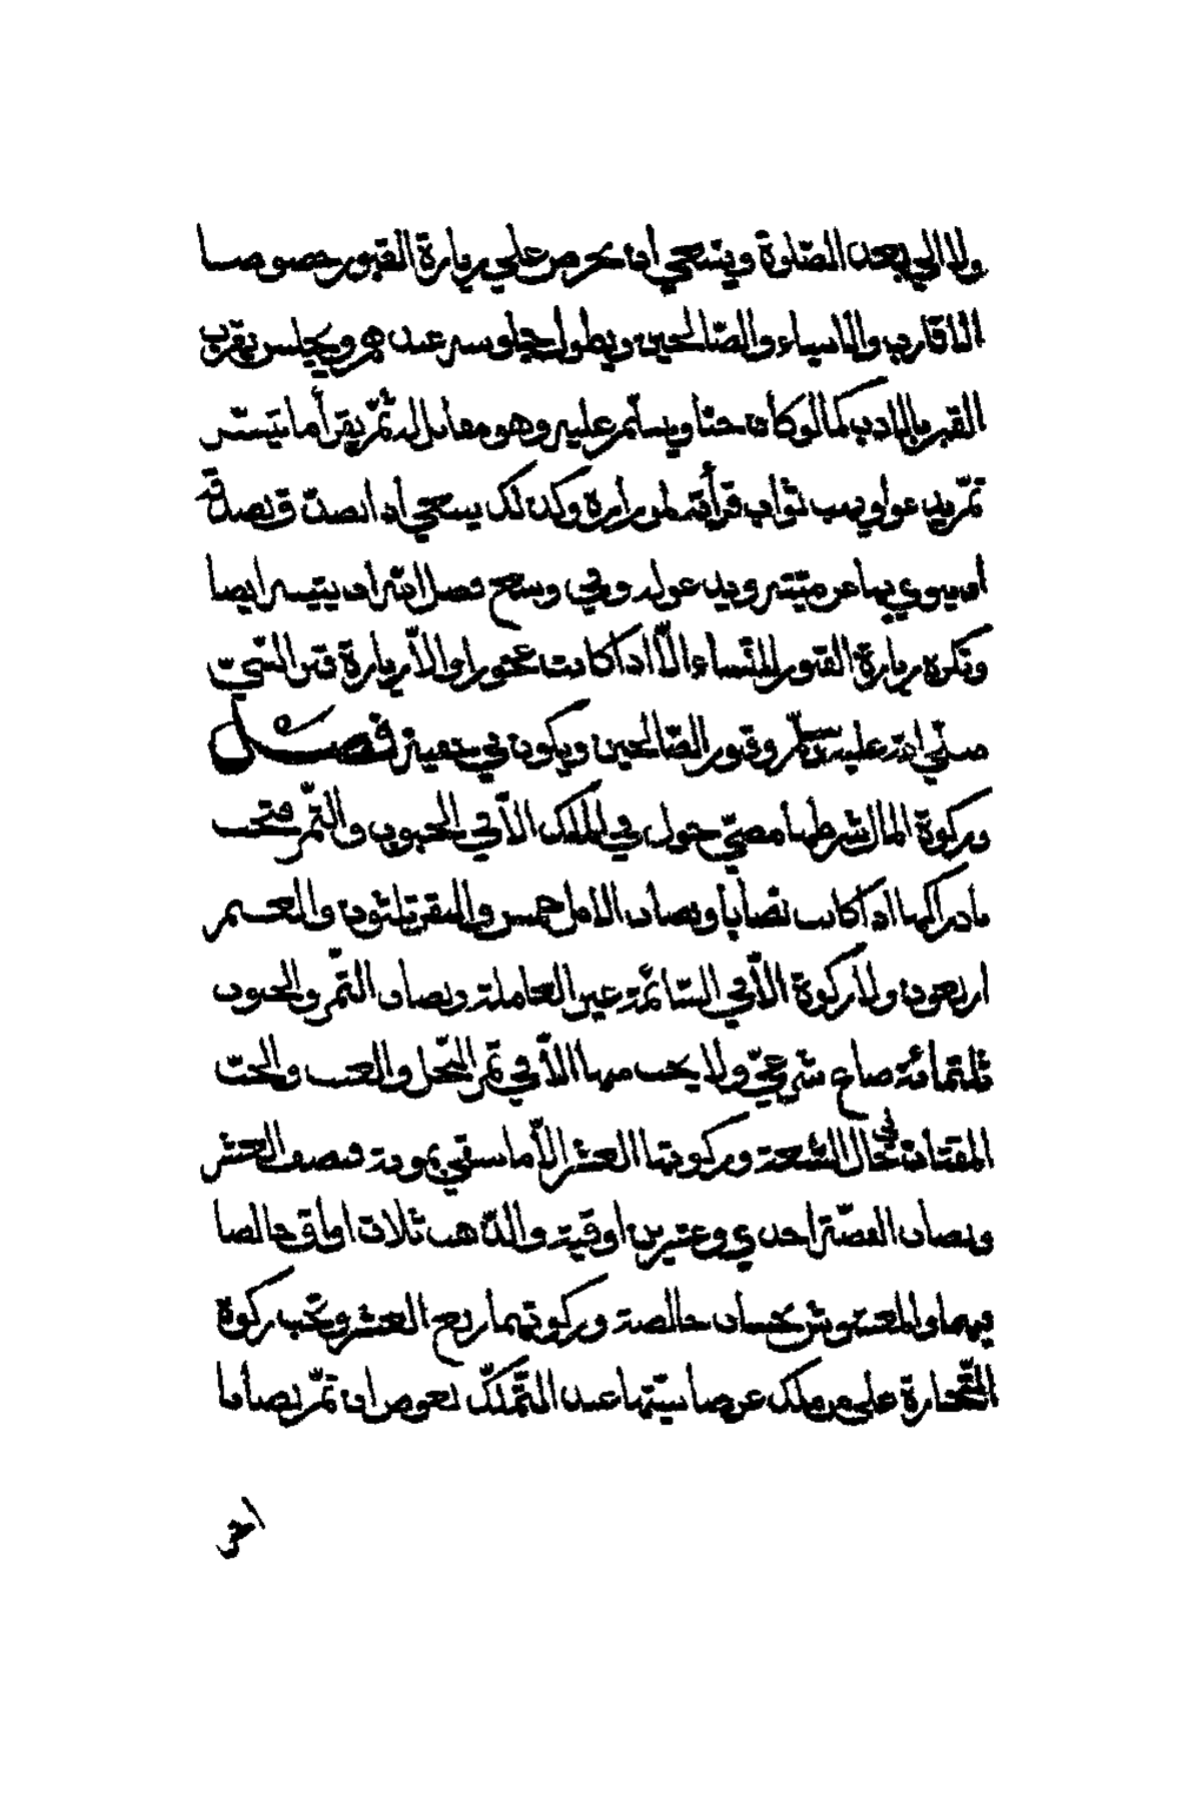 والا الي بعد الصلوة وينبغي ان يحرص علي زيارة القبور خصوصا
الاقارب والانبياء والصالحين ويطول جلوسه عندهم ويجلس بقرب
القبر بالادب كما لو كان حيا ويسلم عليه وهو مقابل له ثم يقرأ ما تيسر
ثم يدعو ويهب ثواب قرأته لمن زاره وكذلك ينبغي اذا تصدق بصدقة
ان ينوي بها عن ميته ويدعو له وفي
وتكره زيارة القبور للنساء الا اذا كانت عجوزا والا زيارة قبر النبي
صلي الله عليه وسلم وقبور الصالحين ويكون في سفينة فصل
وزكوة المال شرطها مضي حول في الملك الا في الحبوب والتمر فتجب
بادراكها اذا كانت نصابا ونصاب الابل خمس والبقر ثلثون والغنم
اربعون ولا زكوة الا في السائمة غير العاملة ونصاب التمر والحبوب
ثلثمائة صاع شرعي ولا يجب منها الا في تمر النخل والعنب والحب
المقتات في حال السعة وزكوتها العشر الا ما سقي بمونة فنصف العشر
ونصاب الفضة احدي وعشرين اوقية والذهب ثلاث اواق خالصا
فيهما والمغشوش بحساب خالصه وزكوتهما ربع العشر وتجب زكوة
التجارة علي من ملك عرضا بنيتها عند التملك بعوض ان تم نصابا
اخر